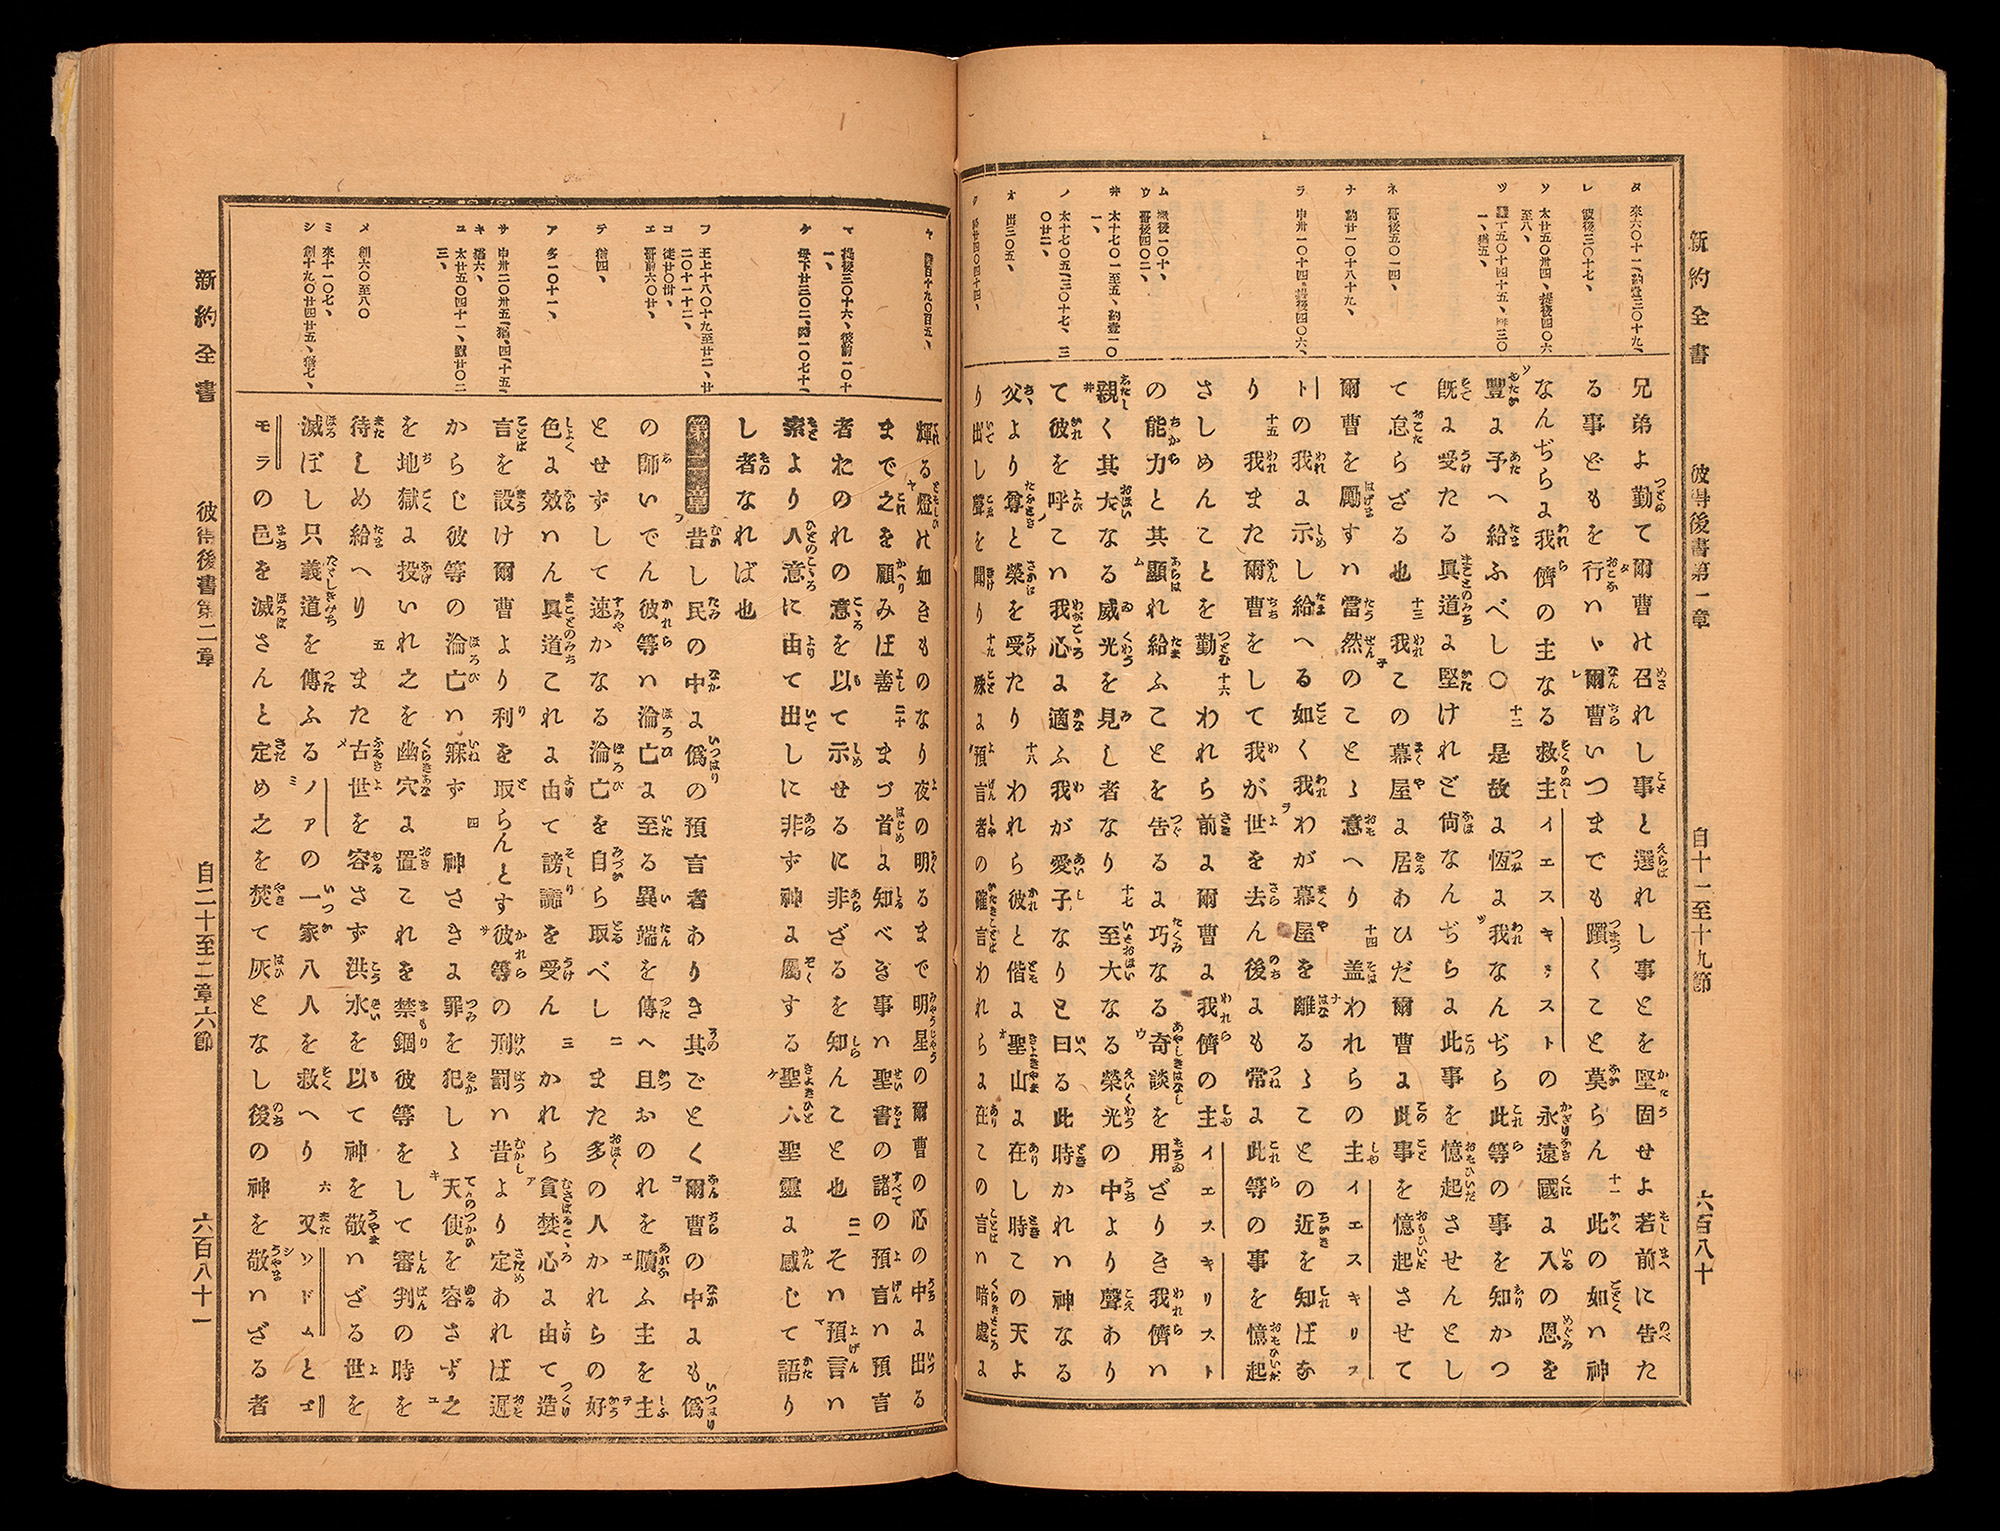 新約全書 彼得後書第一章 自十一至十九節 六百八十
タ 來六〇十一、約壹三〇十九、
レ 彼後三〇十七、
ソ 太廿五〇卅四、提後四〇六至八、
ネ 哥後五〇一四、
ナ 約廿一〇十八十九、
ラ 申卅一〇十四、提後四〇六、
ウ 哥後四〇二、
井 太十七〇一至五、約壹一〇一、
ノ 太十七〇五、三〇十七、三〇廿二、
オ 出三〇五、
兄弟よ勤て爾曹の召れし事と選れし事とを堅固せよ若前に告た
る事どもを行ハヾ爾曹いつまでも躓くこと莫らん 十一 此の如ハ神
なんぢらに我儕の主なる救主イエスキリストの永遠國に入の恩を
豐に予へ給ふべし〇 十二 是故に恆に我なんぢら此等の事を知かつ
既に受たる眞道に堅けれど尙なんぢらに此事を憶起させんとし
て怠らざる也 十三 我この幕屋に居あひだ爾曹に此事を憶起させて
爾曹を勵すハ當然のことゝ意へり 十四 蓋われらの主イエスキリス
トの我に示し給へる如く我わが幕屋を離るゝことの近を知ばな
り 十五 我また爾曹をして我が世を去ん後にも常に此等の事を憶起
さしめんことを勤 十六 われら前に爾曹に我儕の主イエスキリスト
の能力と其顯れ給ふことを告るに巧なる奇談を用ざりき我儕ハ
親く其大なる威光を見し者なり 十七 至大なる榮光の中より聲あり
て彼を呼こハ我心に適ふ我が愛子なりと曰る此時かれハ神なる
父より尊と榮を受たり 十八 われら彼と偕に聖山に在し時この天よ
り出し聲を聞り 十九 殊に預言者の確言われらに在この言ハ暗處に
ヤ 詩百十九〇百五、
マ 提後三〇十六、彼前一〇十一、
ケ 母下廿三〇二、路一〇七十、
フ 王上十八〇十九至廿二、廿二〇十一十二、
コ 徒廿〇卅、
エ 哥前六〇廿、
テ 猶四、
ア 多一〇十一、
サ 申卅二〇卅五、猶、四、十五、
キ 猶六、
ユ 太廿五〇四十一、默廿〇二三、
メ 創六〇至八〇
ミ 來十一〇七、
シ 創十九〇廿四廿五、猶七、
輝る燈の如きものなり夜の明るまで明星の爾曹の心の中に出る
まで之を顧みば善 二十 まづ首に知べき事ハ聖書の諸の預言ハ預言
者おのれの意を以て示せるに非ざるを知んこと也 二一 そハ預言ハ
素より人意に由て出しに非ず神に屬する聖人聖靈に感じて語り
し者なれば也
第二章 昔し民の中に僞の預言者ありき其ごとく爾曹の中にも僞
の師いでん彼等ハ淪亡に至る異端を傳へ且おのれを贖ふ主を主
とせずして速かなる淪亡を自ら取べし 二 また多の人かれらの好
色に效ハん眞道これに由て謗讟を受ん 三 かれら貪婪心に由て造
言を設け爾曹より利を取らんとす彼等の刑罰ハ昔より定あれば遲
からじ彼等の淪亡ハ寐ず 四 神さきに罪を犯しゝ天使を容さず之
を地獄に投いれ之を幽穴に置これを禁錮彼等をして審判の時を
待しめ給へり 五 また古世を容さず洪水を以て神を敬ハざる世を
滅ぼし只義道を傳ふるノアの一家八人を救へり 六 又ソドムとゴ
モラの邑を滅さんと定め之を焚て灰となし後の神を敬ハざる者
新約全書 彼得後書第二章 自二十至二章六節 六百八十一